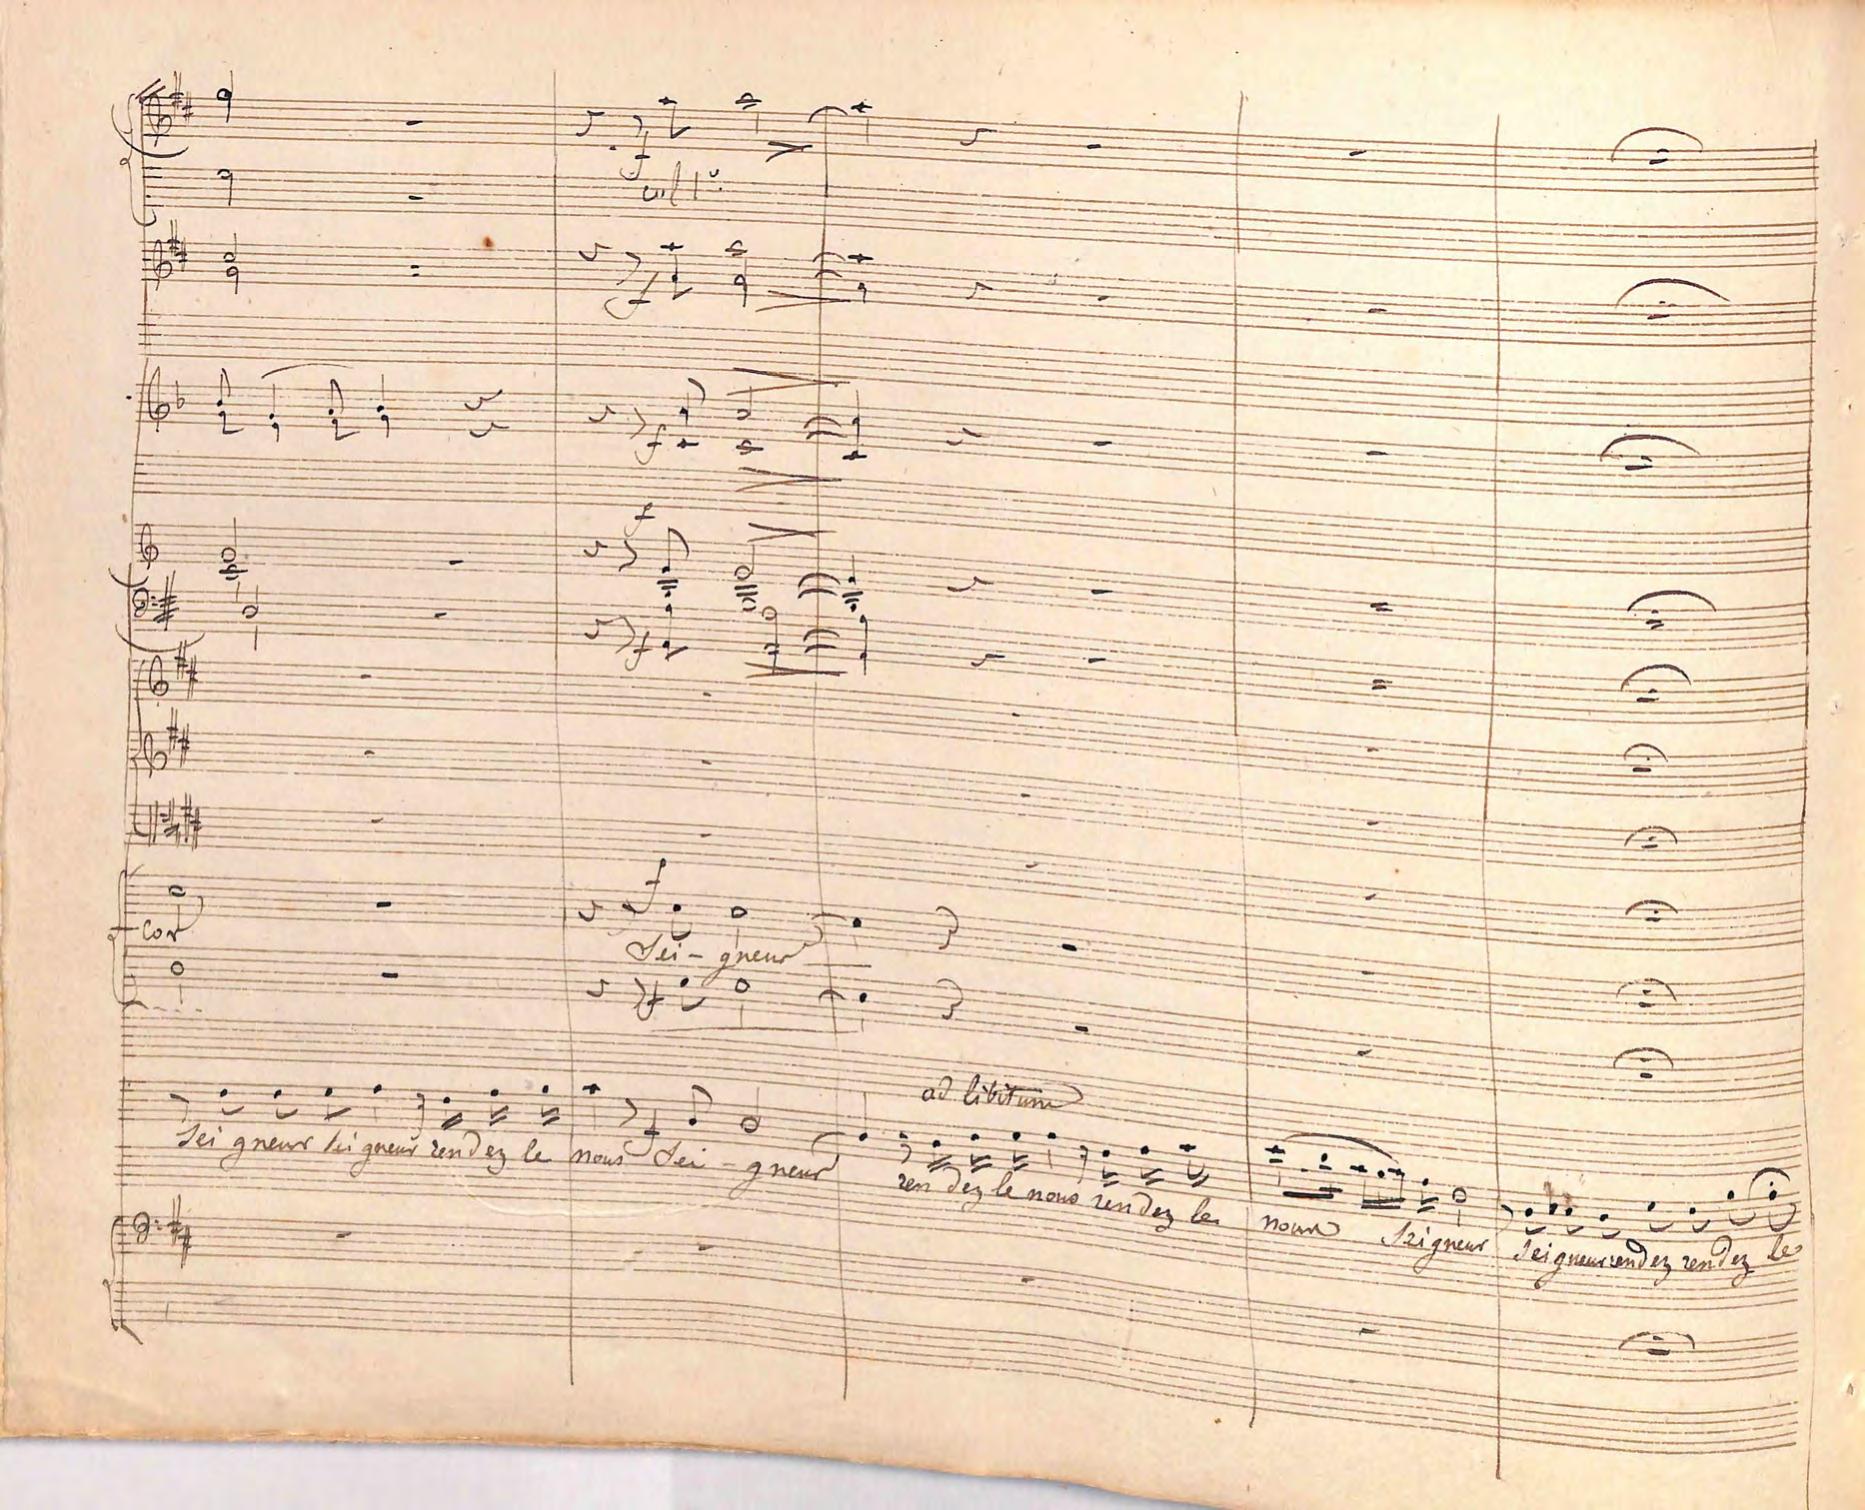 f
col 1º
f
f
f
f
f
Cor
Sei - gneur
f
ad libitum
Sei gneur Sei gneur rendez le nous Sei - gneur ren dez le nous rendez le nous Seigneur Seigneur rendez rendez le
f